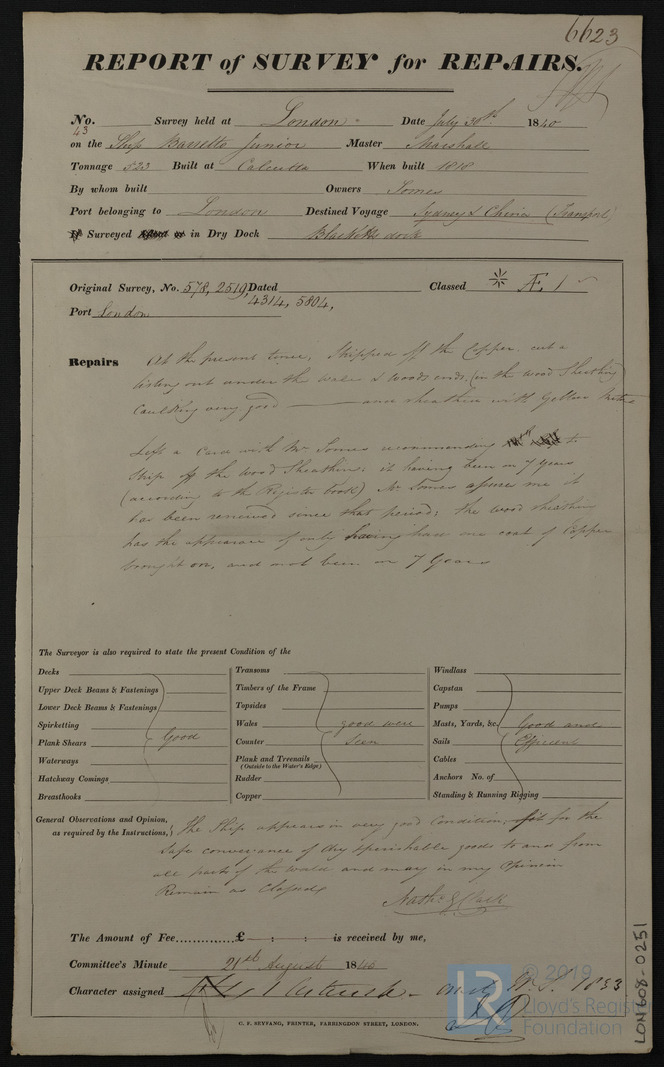 6623
REPORT of SURVEY for REPAIRS.
No. 43 Survey held at London Date July 30th 1840
on the Ship Barretto Junior Master Marshall
Tonnage 523 Built at Calcutta When built 1818
By whom built Owners Somes
Port belonging to London Destined Voyage Sydney & China (Transport)
If Surveyed Afloat or in Dry Dock Blacketts dock
Original Survey, No. 578, 2519, Dated Classed Æ 1
4314, 5804,
Port London
Repairs At the present time, Stripped off the Copper. cut a
listing out under the wale & woods ends, (in the wood Sheathing)
Caulking very good and sheathe with Yellow Metal
Left a Card with Mr Somes recommending to
Strip off the wood Sheathing; it having been on 7 years
(according to the Register book) Mr Somes assure me it
has been renewed since that period; the wood sheathing
has the appearance of only having have one coat of Copper
brought on, and not been on 7 Years
The Surveyor is also required to state the present Condition of the
Decks
Upper Deck Beams & Fastenings
Lower Deck Beams & Fastenings
Spirketting
Plank Shears Good
Waterways
Hatchway Comings
Breasthooks
Transoms
Timbers of the Frame
Topsides
Wales good were
Counter Seen
Plank and Treenails
(Outside to the Water's Edge)
Rudder
Copper
Windlass
Capstan
Pumps
Masts, Yards, &c. Good and
Sails Efficient
Cables
Anchors No. of
Standing & Running Rigging
General Observations and Opinion,
as required by the Instructions,
The Ship appears in very good Condition, fit for the
Safe conveyance of dry & perishable goods to and from
all parts of the world and may in my Opinion
Remain as Classed
Nathl G Clark
The Amount of Fee £ : : is received by me,
Committee's Minute 21st August 1840
Character assigned
1833
C. F. SEYFANG, PRINTER, FARRINGDON STREET, LONDON.
LON 608-0251
LR © 2019
Lloyd's Register
Foundation